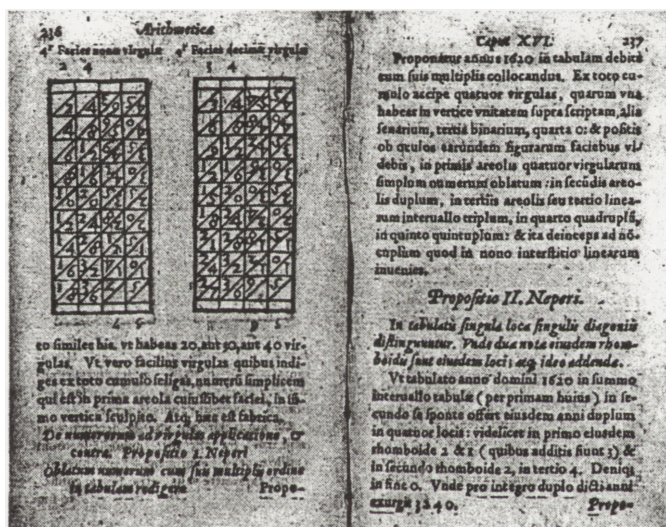 236 Arithmetica
4r Facies nonæ virgulæ 4r Facies decimæ virgulæ
2 4 3 4
eo similes his. vt habeas 20, aut 30, aut 40 vir-
gulas. Vt vero facilius virgulas quibus indi-
ges ex toto cumulo seligas, numerũ simplicem
qui est in prima areola cuiuslibet faciei, in ip̃-
mo vertice sculpito. Atq; hæc est fabrica.
De numerorum ad virgulas applicatione, &
contra. Propositio 1. Neperi
Oblatum numerum cum suis multiplis ordine
in tabulam redigere Propo-
Caput XVI. 237
Proponatur annus 1620 in tabulam debitè
cum suis multiplis collocandus. Ex toto cu-
mulo accipe quatuor virgulas, quarum vna
habeat in vertice vnitatem supra scriptam, alia
senarium, tertia binarium, quarta 0: & positis
ob oculos earundem figurarum faciebus vi-
debis, in primis areolis quatuor virgularum
simplum numerum oblatum: in secũdis areo-
lis duplum, in tertiis areolis seu tertio linea-
rum interuallo triplum, in quarto quadruplũ,
in quinto quintuplum: & ita deinceps ad nõ-
cuplum quod in nono interstitio linearum
inuenies.
Propositio II. Neperi.
In tabulatis singula loca singulis diagoniis
distinguuntur. Vnde duæ notæ eiusdem rhom-
boidis sunt eiusdem loci; atq; ideo addendæ.
Vt tabulato anno domini 1620 in summo
interuallo tabulæ (per primam huius) in se-
cundo se sponte offert eiusdem anni duplum
in quatuor locis: videlicet in primo eiusdem
rhomboide 2 & 1 (quibus additis fiunt 3) &
in secundo rhomboide 2, in tertio 4. Deniq;
in fine 0. Vnde pro integro duplo dicti anni
exurgit 3240. Propo-